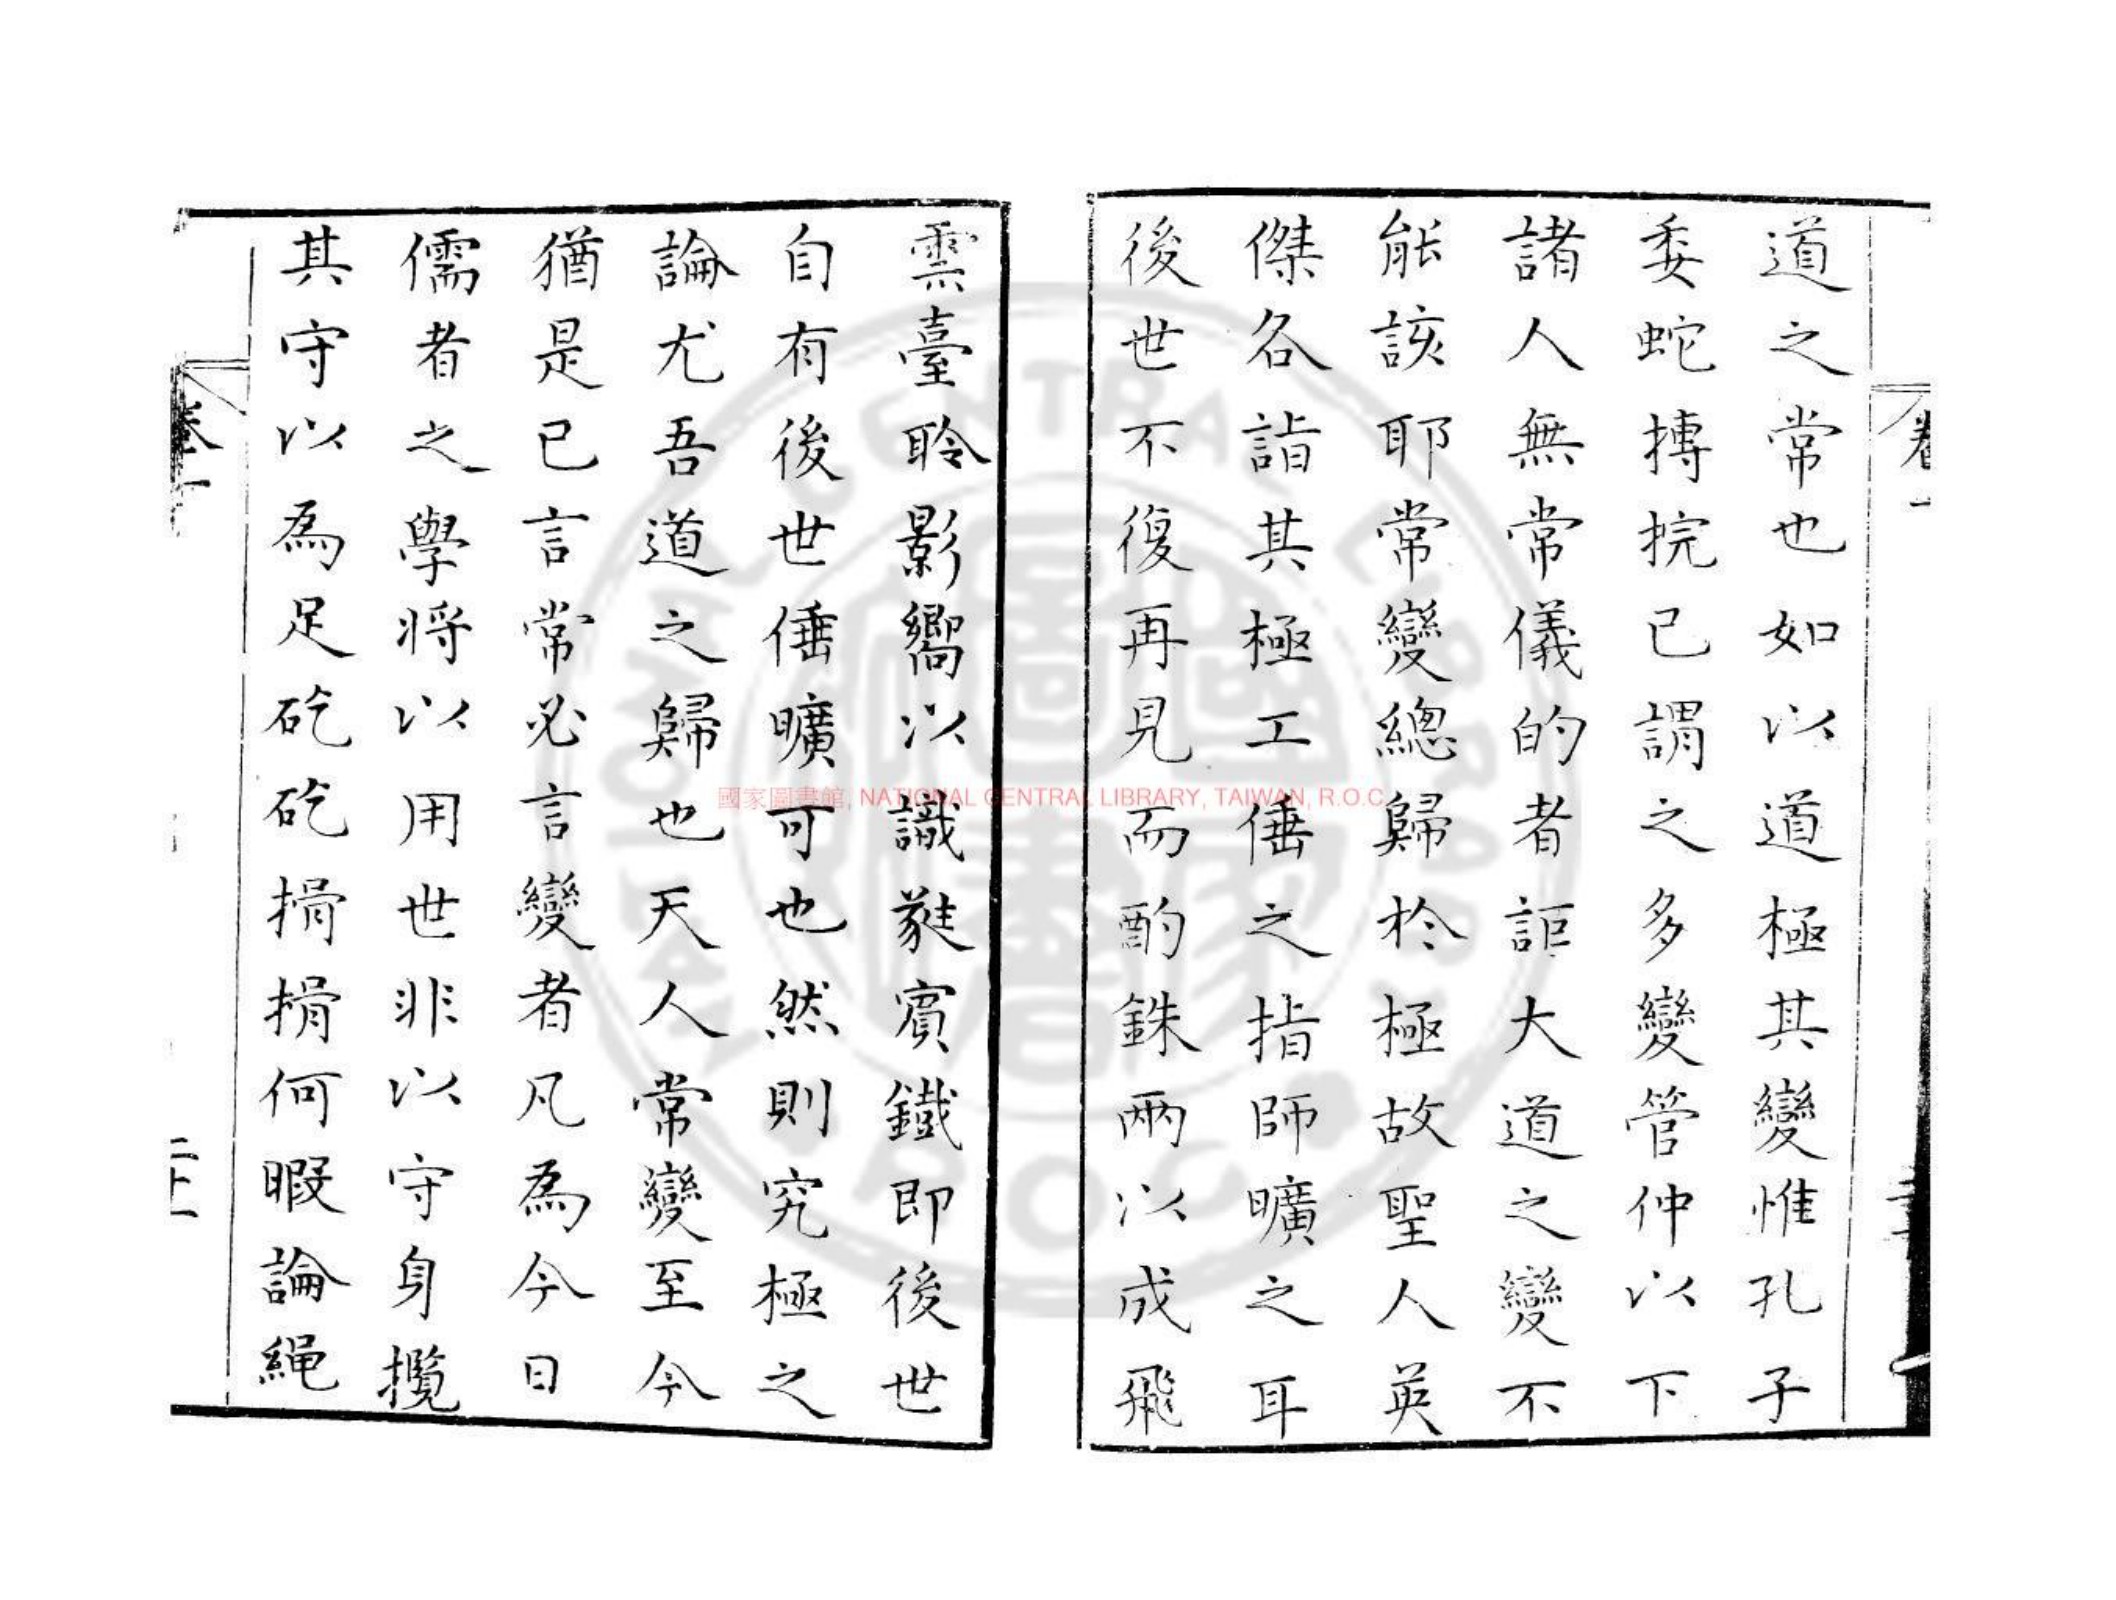 道之常也如以道極其變惟孔子
委蛇摶捖已謂之多變管仲以下
諸人無常儀的者詎大道之變不
能該耶常變總歸於極故聖人英
傑各詣其極工倕之指師曠之耳
後世不復再見而酌銖兩以成飛
雲臺聆影嚮以識蕤賓鐵即後世
自有後世倕曠可也然則究極之
論尤吾道之歸也天人常變至今
猶是已言常必言變者凡為今日
儒者之學將以用世非以守身攬
其守以為足矻矻搰搰何暇論繩
卷一
國家圖書館, NATIONAL CENTRAL LIBRARY, TAIWAN, R.O.C